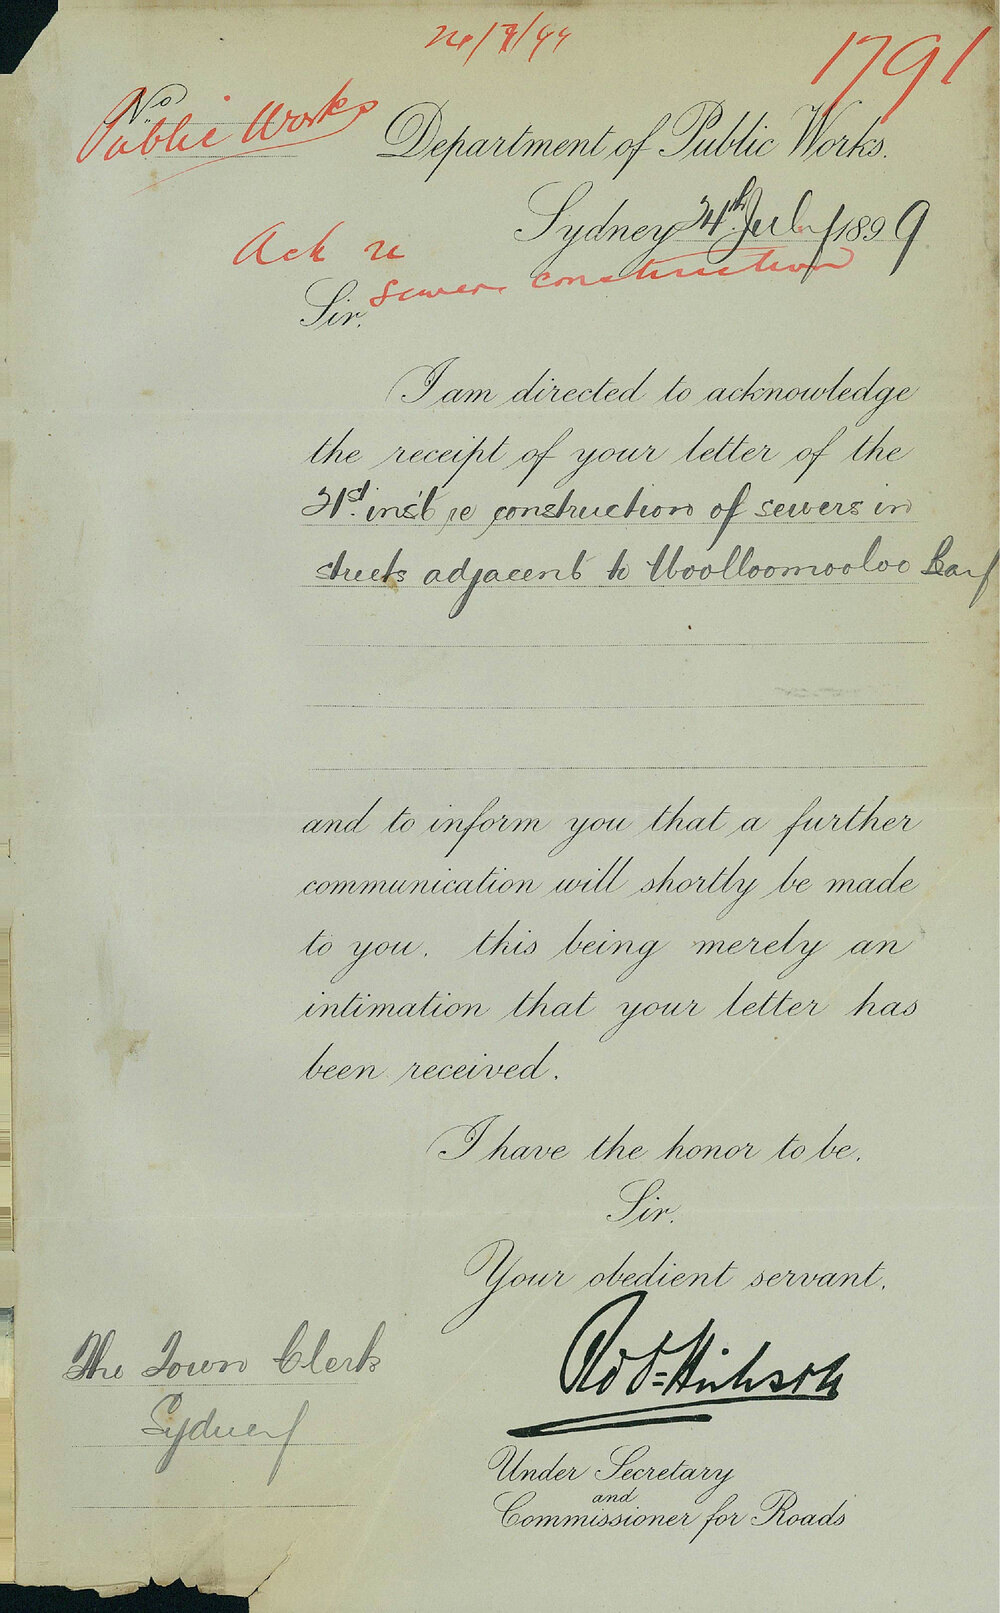 26/7/99
1791
No
Public Works
Department of Public Works.
Sydney 24th July 1899
Ack re
Sewer construction
Sir,
I am directed to acknowledge
the receipt of your letter of the
21st inst re construction of sewers in
streets adjacent to Woolloomooloo Bay
and to inform you that a further
communication will shortly be made
to you, this being merely an
intimation that your letter has
been received.
I have the honor to be,
Sir,
Your obedient servant,
Robt Hickson
Under Secretary
and
Commissioner for Roads
The Town Clerk
Sydney